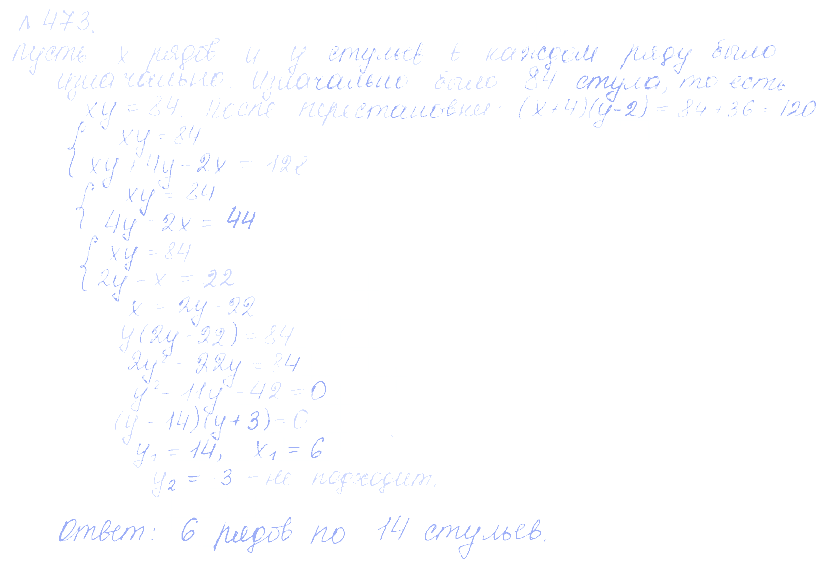 № 473.
Пусть x рядов и y стульев в каждом ряду было
изначально. Изначально было 84 стула, то есть
xy = 84. После перестановки: (x+4)(y-2) = 84+36 = 120
{ xy = 84
{ xy + 4y - 2x - = 128
{ xy = 84
{ 4y - 2x = 44
{ xy = 84
{ 2y - x = 22
x = 2y - 22
y(2y - 22) = 84
2y² - 22y = 84
y² - 11y - 42 = 0
(y - 14)(y + 3) = 0
y₁ = 14, x₁ = 6
y₂ = 3 - не подходит.
Ответ: 6 рядов по 14 стульев.